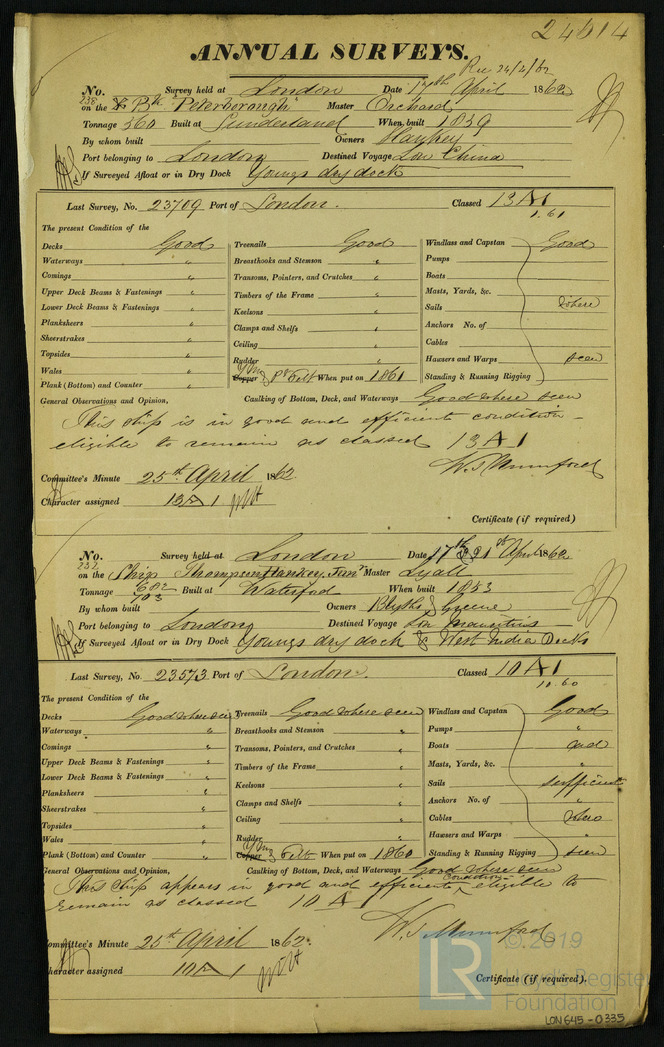 24614
ANNUAL SURVEYS.
Rec 24/4/62
No. 238 Survey held at London Date 17th April 1862
on the Bk "Peterborough" Master Orchard
Tonnage 360 Built at Sunderland When built 1839
By whom built Owners Hankey
Port belonging to London Destined Voyage Lon China
If Surveyed Afloat or in Dry Dock Youngs dry dock
Last Survey, No. 23709 Port of London. Classed 13 A 1
1.61
The present Condition of the
Decks Good Treenails Good Windlass and Capstan Good
Waterways " Breasthooks and Stemson " Pumps
Comings " Transoms, Pointers, and Crutches " Boats
Upper Deck Beams & Fastenings " Timbers of the Frame " Masts, Yards, &c.
Lower Deck Beams & Fastenings " Keelsons " Sails where
Planksheers " Clamps and Shelfs " Anchors No. of
Sheerstrakes " Ceiling Cables
Topsides " Rudder Hawsers and Warps seen
Wales " Copper YM Felt When put on 1861 Standing & Running Rigging
Plank (Bottom) and Counter " Caulking of Bottom, Deck, and Waterways Good where seen
General Observations and Opinion,
This ship is in good and efficient condition -
eligible to remain as classed 13 A 1
W. J. Mumford
Committee's Minute 25th April 1862.
Character assigned 13 A 1
Certificate (if required)
No. 232 Survey held at London Date 17th & 21st April 1862
on the Ship Thompson Hankey, Junr Master Lyall
Tonnage 682 703 Built at Waterford When built 1853
By whom built Owners Blyth & Greene
Port belonging to London Destined Voyage Lon Mauritius
If Surveyed Afloat or in Dry Dock Youngs dry dock & West India Docks
Last Survey, No. 23573 Port of London. Classed 10 A 1
10.60
The present Condition of the
Decks Good where seen Treenails Good where seen Windlass and Capstan Good
Waterways " Breasthooks and Stemson " Pumps "
Comings " Transoms, Pointers, and Crutches " Boats and
Upper Deck Beams & Fastenings " Timbers of the Frame " Masts, Yards, &c. "
Lower Deck Beams & Fastenings " Keelsons " Sails sufficient
Planksheers " Clamps and Shelfs " Anchors No. of "
Sheerstrakes " Ceiling " Cables where
Topsides " Rudder Hawsers and Warps "
Wales " Copper YM Felt When put on 1860 Standing & Running Rigging seen
Plank (Bottom) and Counter " Caulking of Bottom, Deck, and Waterways Good where seen
General Observations and Opinion,
This ship appears in good and efficient condition eligible to
remain as classed 10 A 1
W. J. Mumford
Committee's Minute 25th April 1862.
Character assigned 10 A 1
Certificate (if required).
LR © 2019
Lloyd's Register
Foundation
LON645-0335